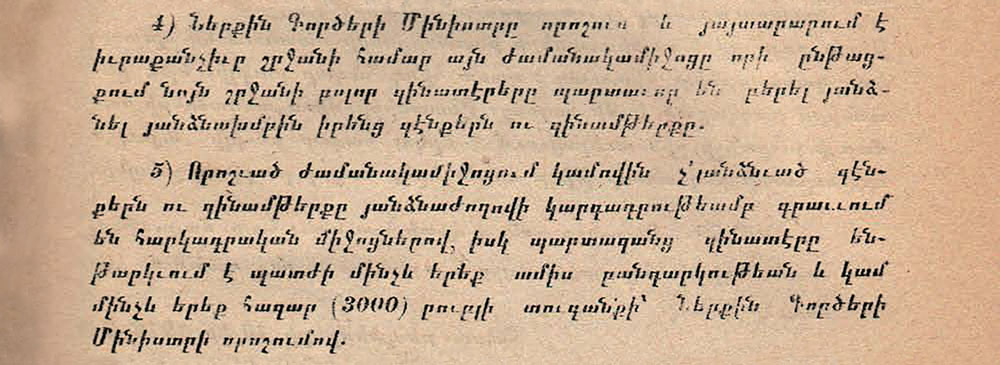 4) Ներքին Գործերի Մինիստրը որոշում և յայտարարում է
իւրաքանչիւր շրջանի համար այն ժամանակամիջոցը որի ընթաց-
քում նոյն շրջանի բոլոր զինատէրերը պարտաւոր են բերել յանձ-
նել յանձնախմբին իրենց զէնքերն ու զինամթերքը.
5) Որոշւած ժամանակամիջոցում կամովին չ՛յանձնւած զէն-
քերն ու զինամթերքը յանձնաժողովի կարգադրութեամբ գրաււում
են հարկադրական միջոցներով, իսկ պարտազանց զինատէրը են-
թարկւում է պատժի մինչև երեք ամիս բանդարկութեան և կամ
մինչև երեք հազար (3000) րուբլի տուգանքի՝ Ներքին Գործերի
Մինիստրի որոշումով.